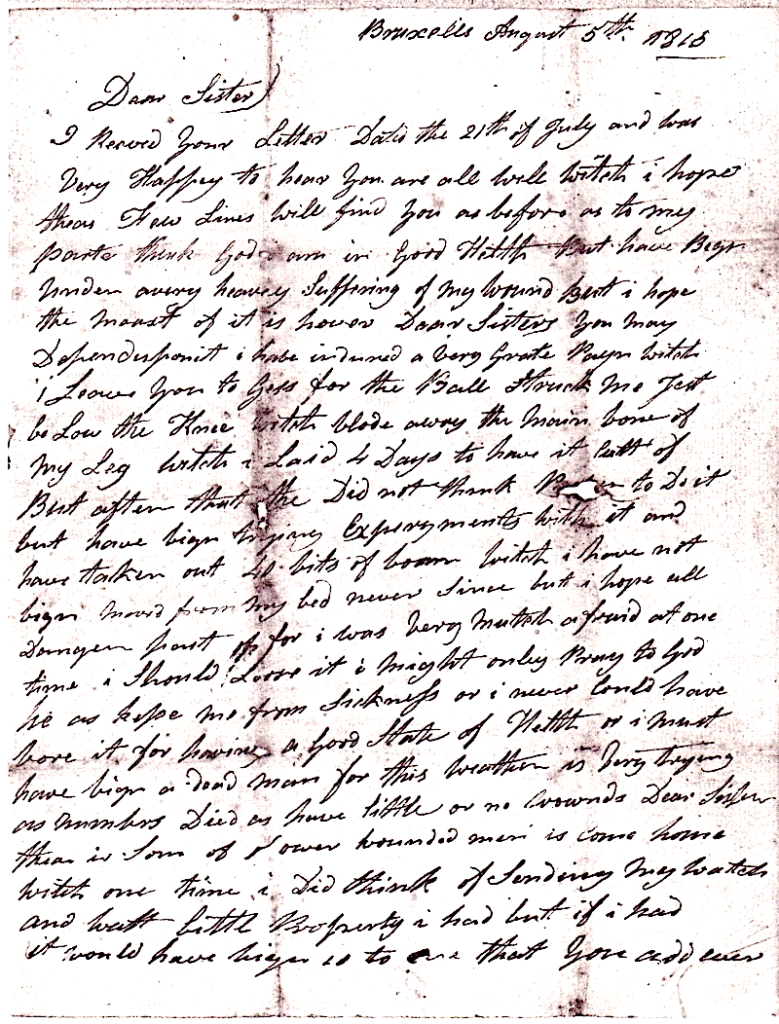 Bruxells August 5th 1815
Dear Sister
I Receved Your Letter Dated the 21th of July and was
Very Happey to hear You are all well witch i hope
theas Few Lines will find You as before as to my
parte think God i am in Good Helth But have Bign
under avery heavey Suffering of my wound But i hope
the moast of it is hover Dear Sisters You may
Dependuponit i have indured a Very Grate Payn witch
i Leave You to Gess for the Ball Struck me Jest
be Low the Knee witch blode away the main bone of
my Leg witch i Laid 4 Days to have it Cutt of
But after that the Did not think to Do it
but have bign trying Experyments with it and
have taken out 40 bits of boan witch i have not
bign moved from my bed never Since but i hope all
Danger past for i was Very Mutch afraid at one
time i Should Loose it i might only Pray to God
he as kepe me from Sickness or i never Could have
bore it for having a Good State of Helth or i must
have bign a dead man for this weather is Very trying
as numbers Died as have little or no wounds Dear Sister
thear is Som of ower wounded men is Come home
witch one time i Did think of Sending My watch
and watt little Property i had but if i had
it would have bign to that You add ever